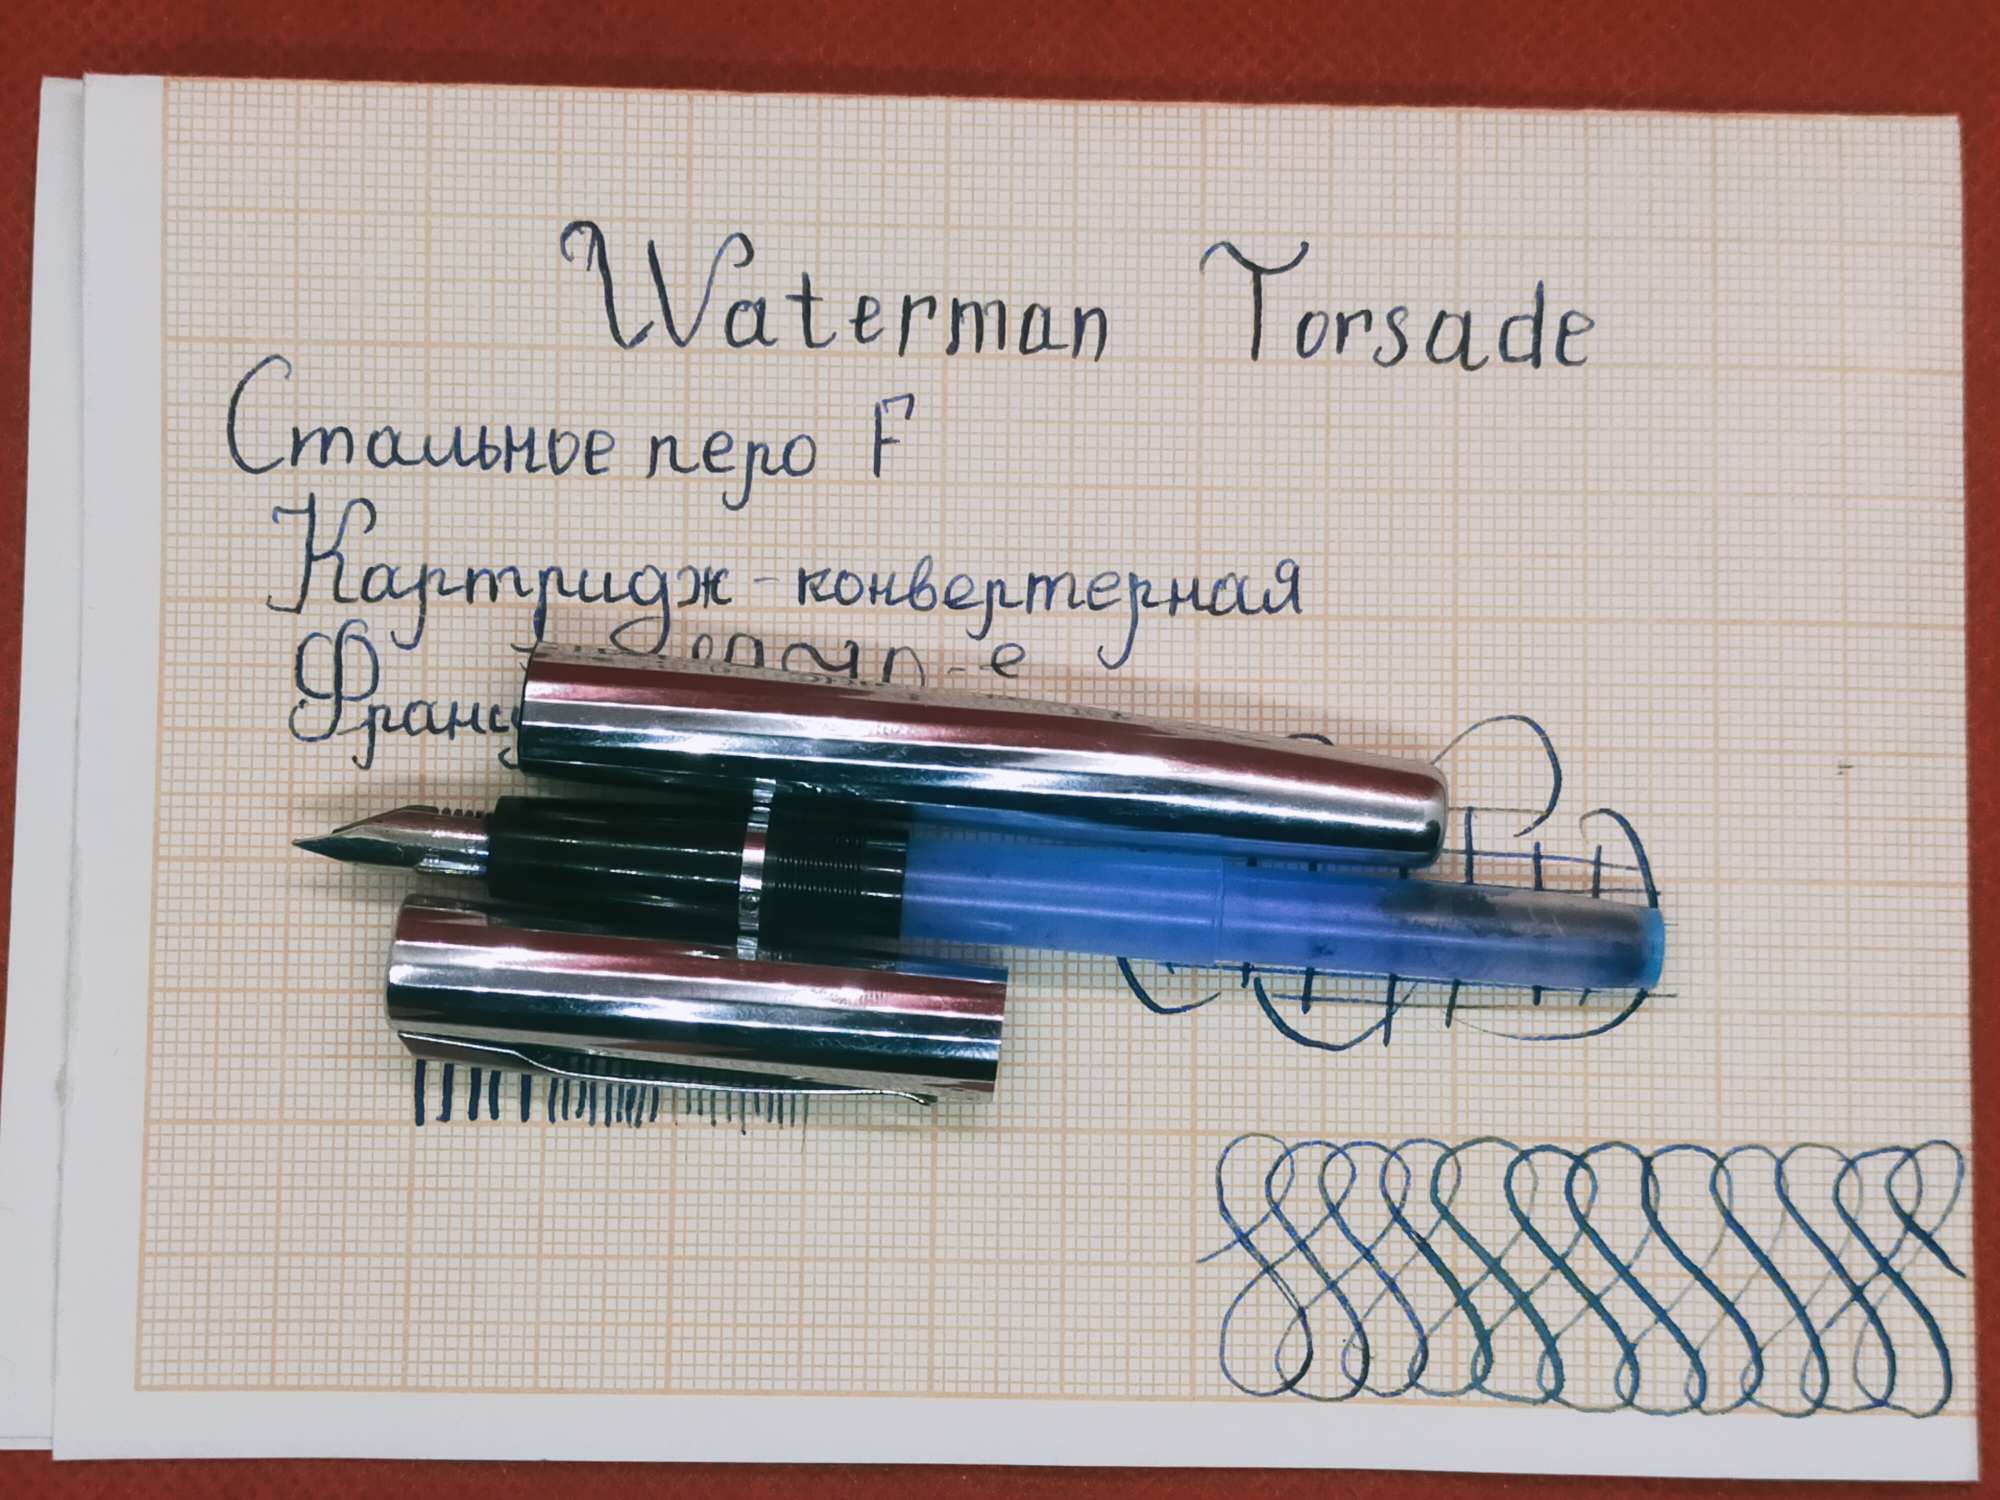 Waterman Torsade
Стальное перо F
Картридж-конвертерная